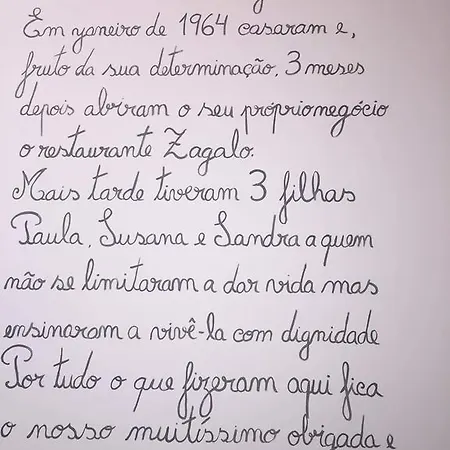 Em yaneiro de 1964 casaram e,
fruto da sua determinação, 3 meses
depois abriram o seu próprio negócio
o restaurante Zagalo.
Mais tarde tiveram 3 filhas
Paula, Susana e Sandra a quem
não se limitaram a dar vida mas
ensinaram a vivê-la com dignidade
Por tudo o que fizeram aqui fica
o nosso muitíssimo obrigada e